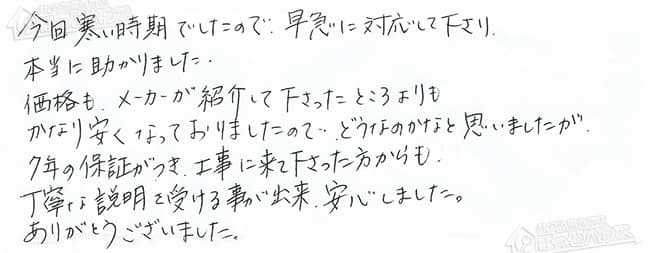 今回寒い時期でしたので、早急に対応して下さり、
本当に助かりました。
価格も、メーカーが紹介して下さったところよりも
かなり安くなっておりましたので、どうなのかなと思いましたが、
7年の保証がつき、工事に来て下さった方からも、
丁寧な説明を受ける事が出来、安心しました。
ありがとうございました。